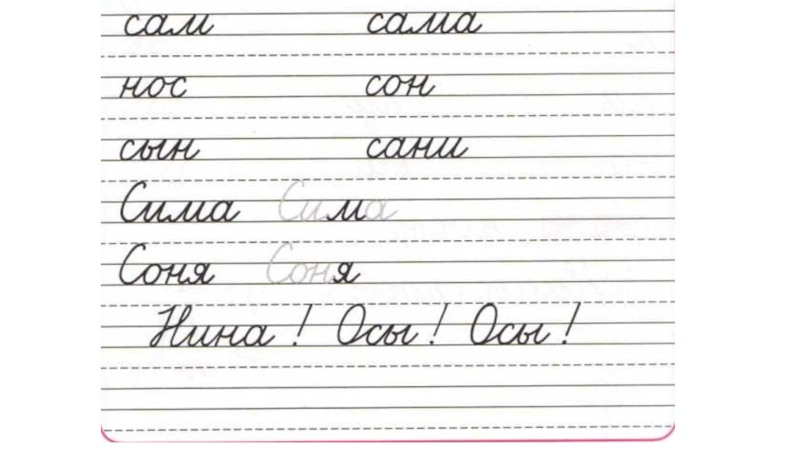 сам сама
нос сон
сын сани
Сима Сима
Соня Соня
Нина! Осы! Осы!